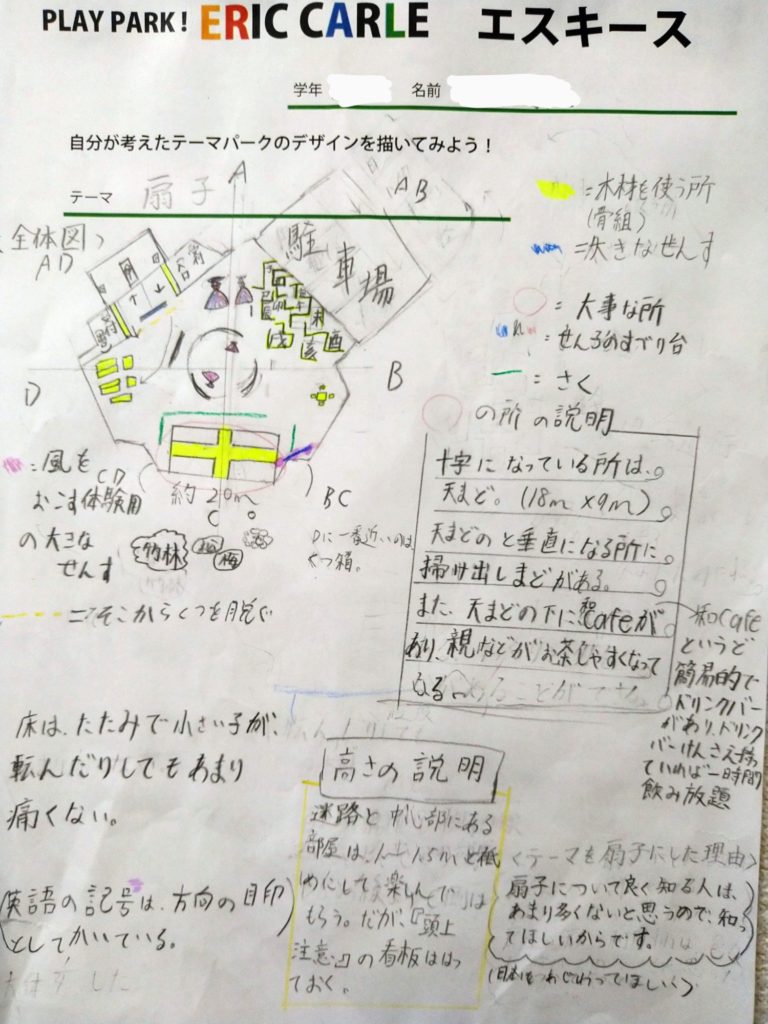 PLAY PARK! ERIC CARLE エスキース
学年
名前
自分が考えたテーマパークのデザインを描いてみよう!
テーマ 扇子
全体図
AD
A
AB
駐車場
D
B
戌
亥
酉
未
約20m
CD
C
BC
=木材を使う所
(骨組)
=大きなせんす
=大事な所
:せん子のすべり台
=さく
の所の説明
十字になっている所は、
天まど。(18m×9m)
天まどのと垂直になる所に
掃け出しまどがある。
また、天まどの下に和cafeが
あり、親などがお茶しやすくなって
なる。
和cafe
というど
簡易的で
ドリンクバー
があり、ドリンク
バーけんさえ持
ていれば一時間
飲み放題
:風を
おこす体験用
の大きな
せんす
竹林
梅
Dに一番近いのは
くつ箱。
=そこからくつを脱ぐ
床は、たたみで小さい子が、
転んだりしてもあまり
痛くない。
英語の記号は、方向の目印
としてかいている。
高さの説明
迷路と中心部にある
部屋は、1m~1.5mと低
めにして楽しんで
もらう。だが、『頭上
注意』の看板ははっ
ておく。
<テーマを扇子にした理由>
扇子について良く知る人は、
あまり多くないと思うので、知っ
てほしいからです。